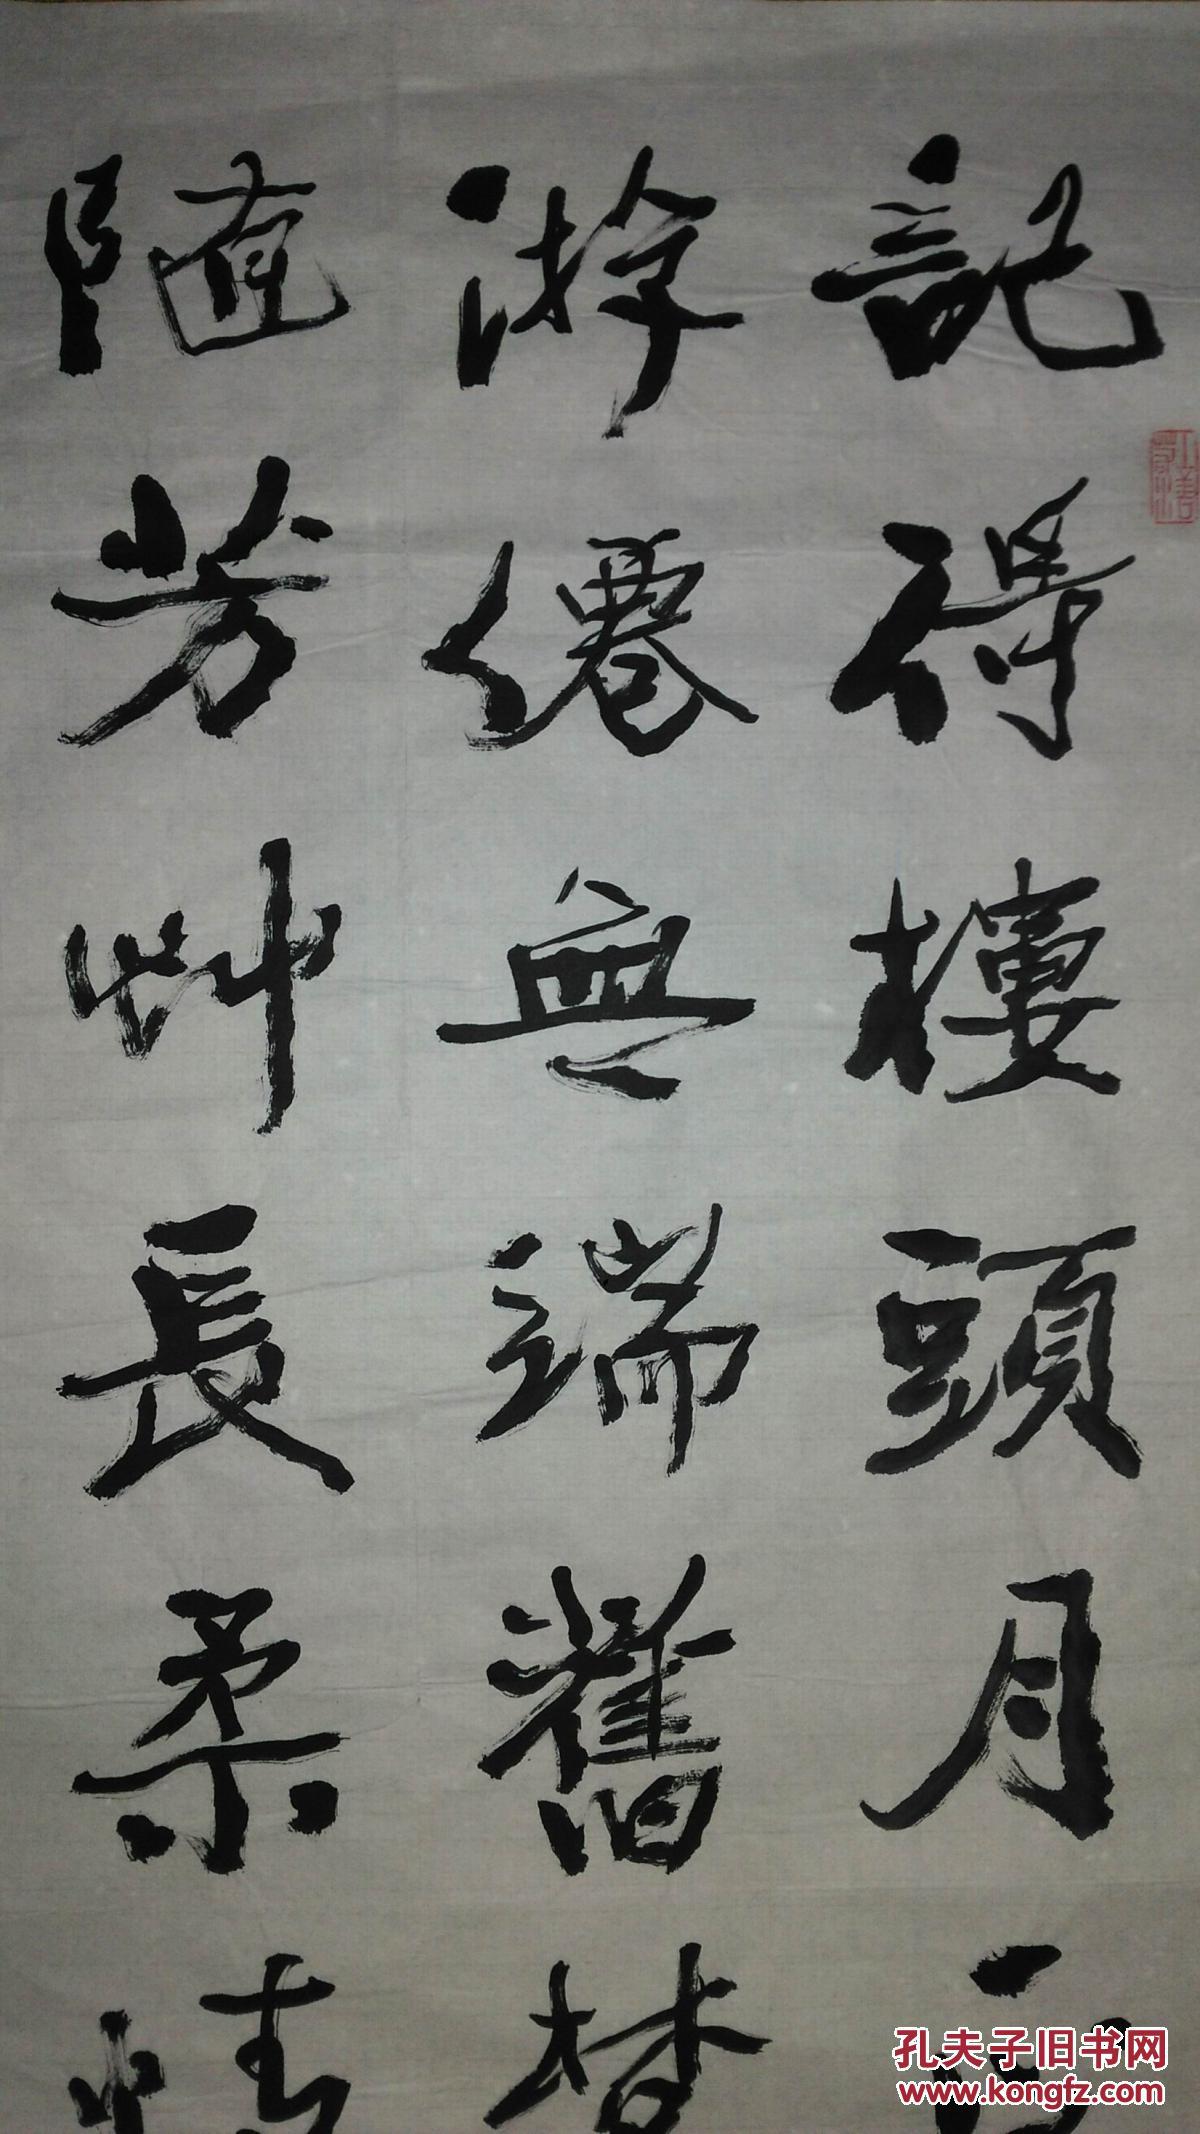 記得樓頭月
游僊無端舊
隨芳艸長柔情
孔夫子旧书网
www.kongfz.com